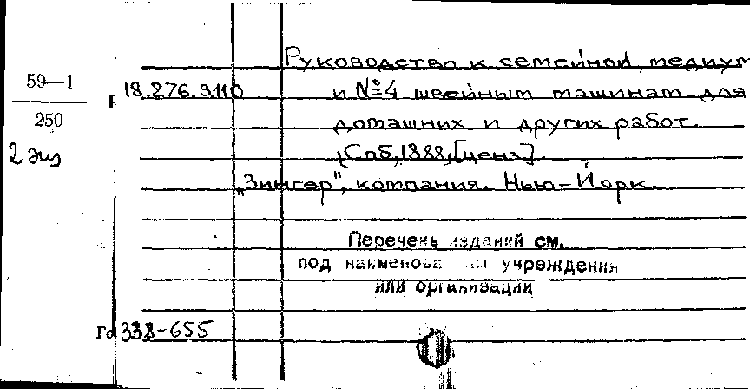 Руководство к семейной медиум
59—1
250
2 экз
18.276.9.110
и №4 швейным машинам для
домашних и других работ.
Спб, 1888, [ценз].
„Зингер", компания. Нью-Йорк
Перечень изданий см.
под наименова учреждения
или организации
Го 338-655